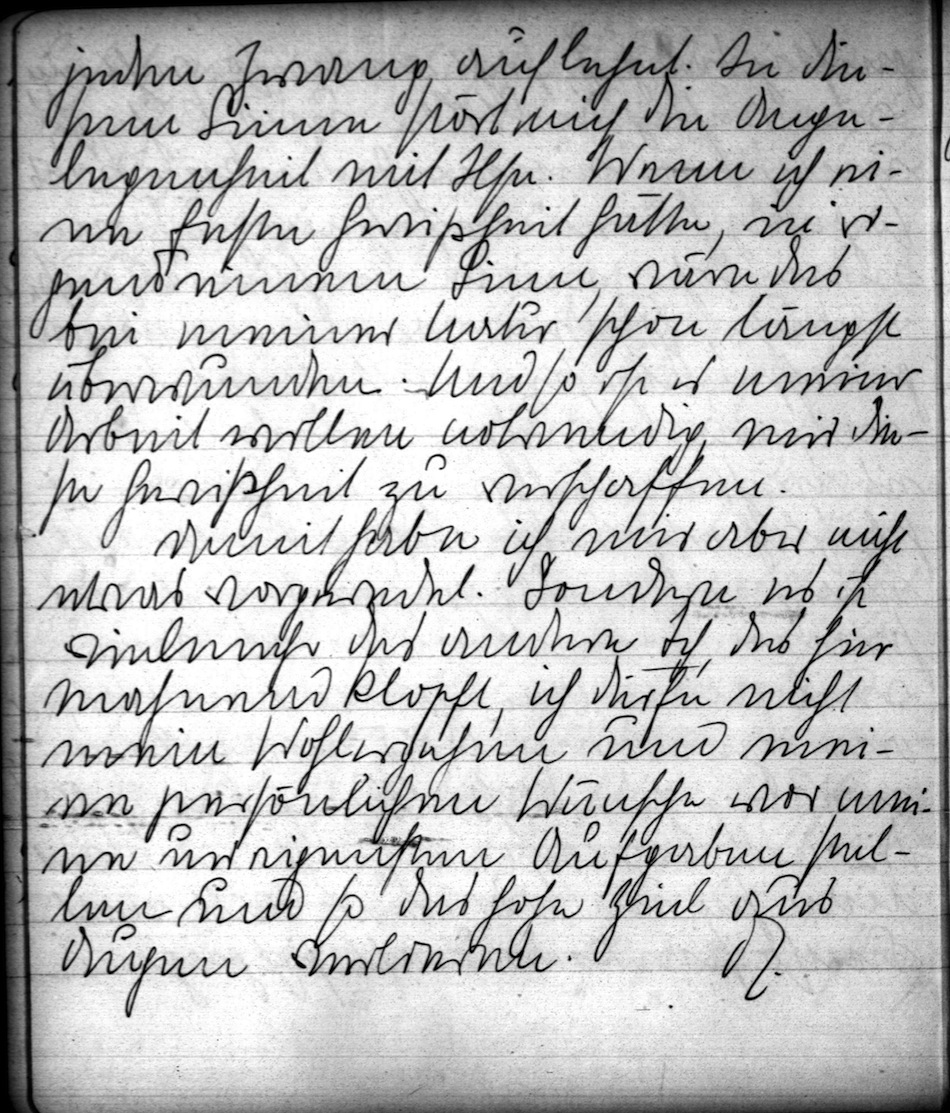 jeden Zwang auflehnt. In die-
sem Sinne stört mich die Ange-
legenheit mit Ilse. Wenn ich ei-
ne feste Gewißheit hätte, in ir-
gend einem Sinn, wäre das
bei meiner Natur schon längst
überwunden. Und so ist es meiner
Arbeit willen notwendig, mir die-
se Gewißheit zu verschaffen.
Damit habe ich mir aber nicht
etwas vorgeredet. Sondern es ist
vielmehr das andere Ich, das hier
mahnend klopft, ich dürfe nicht
mein Wohlergehen und mei-
ne persönlichen Wünsche vor mei-
ne ureigensten Aufgaben stel-
len und so das hohe Ziel aus
Augen verlieren.